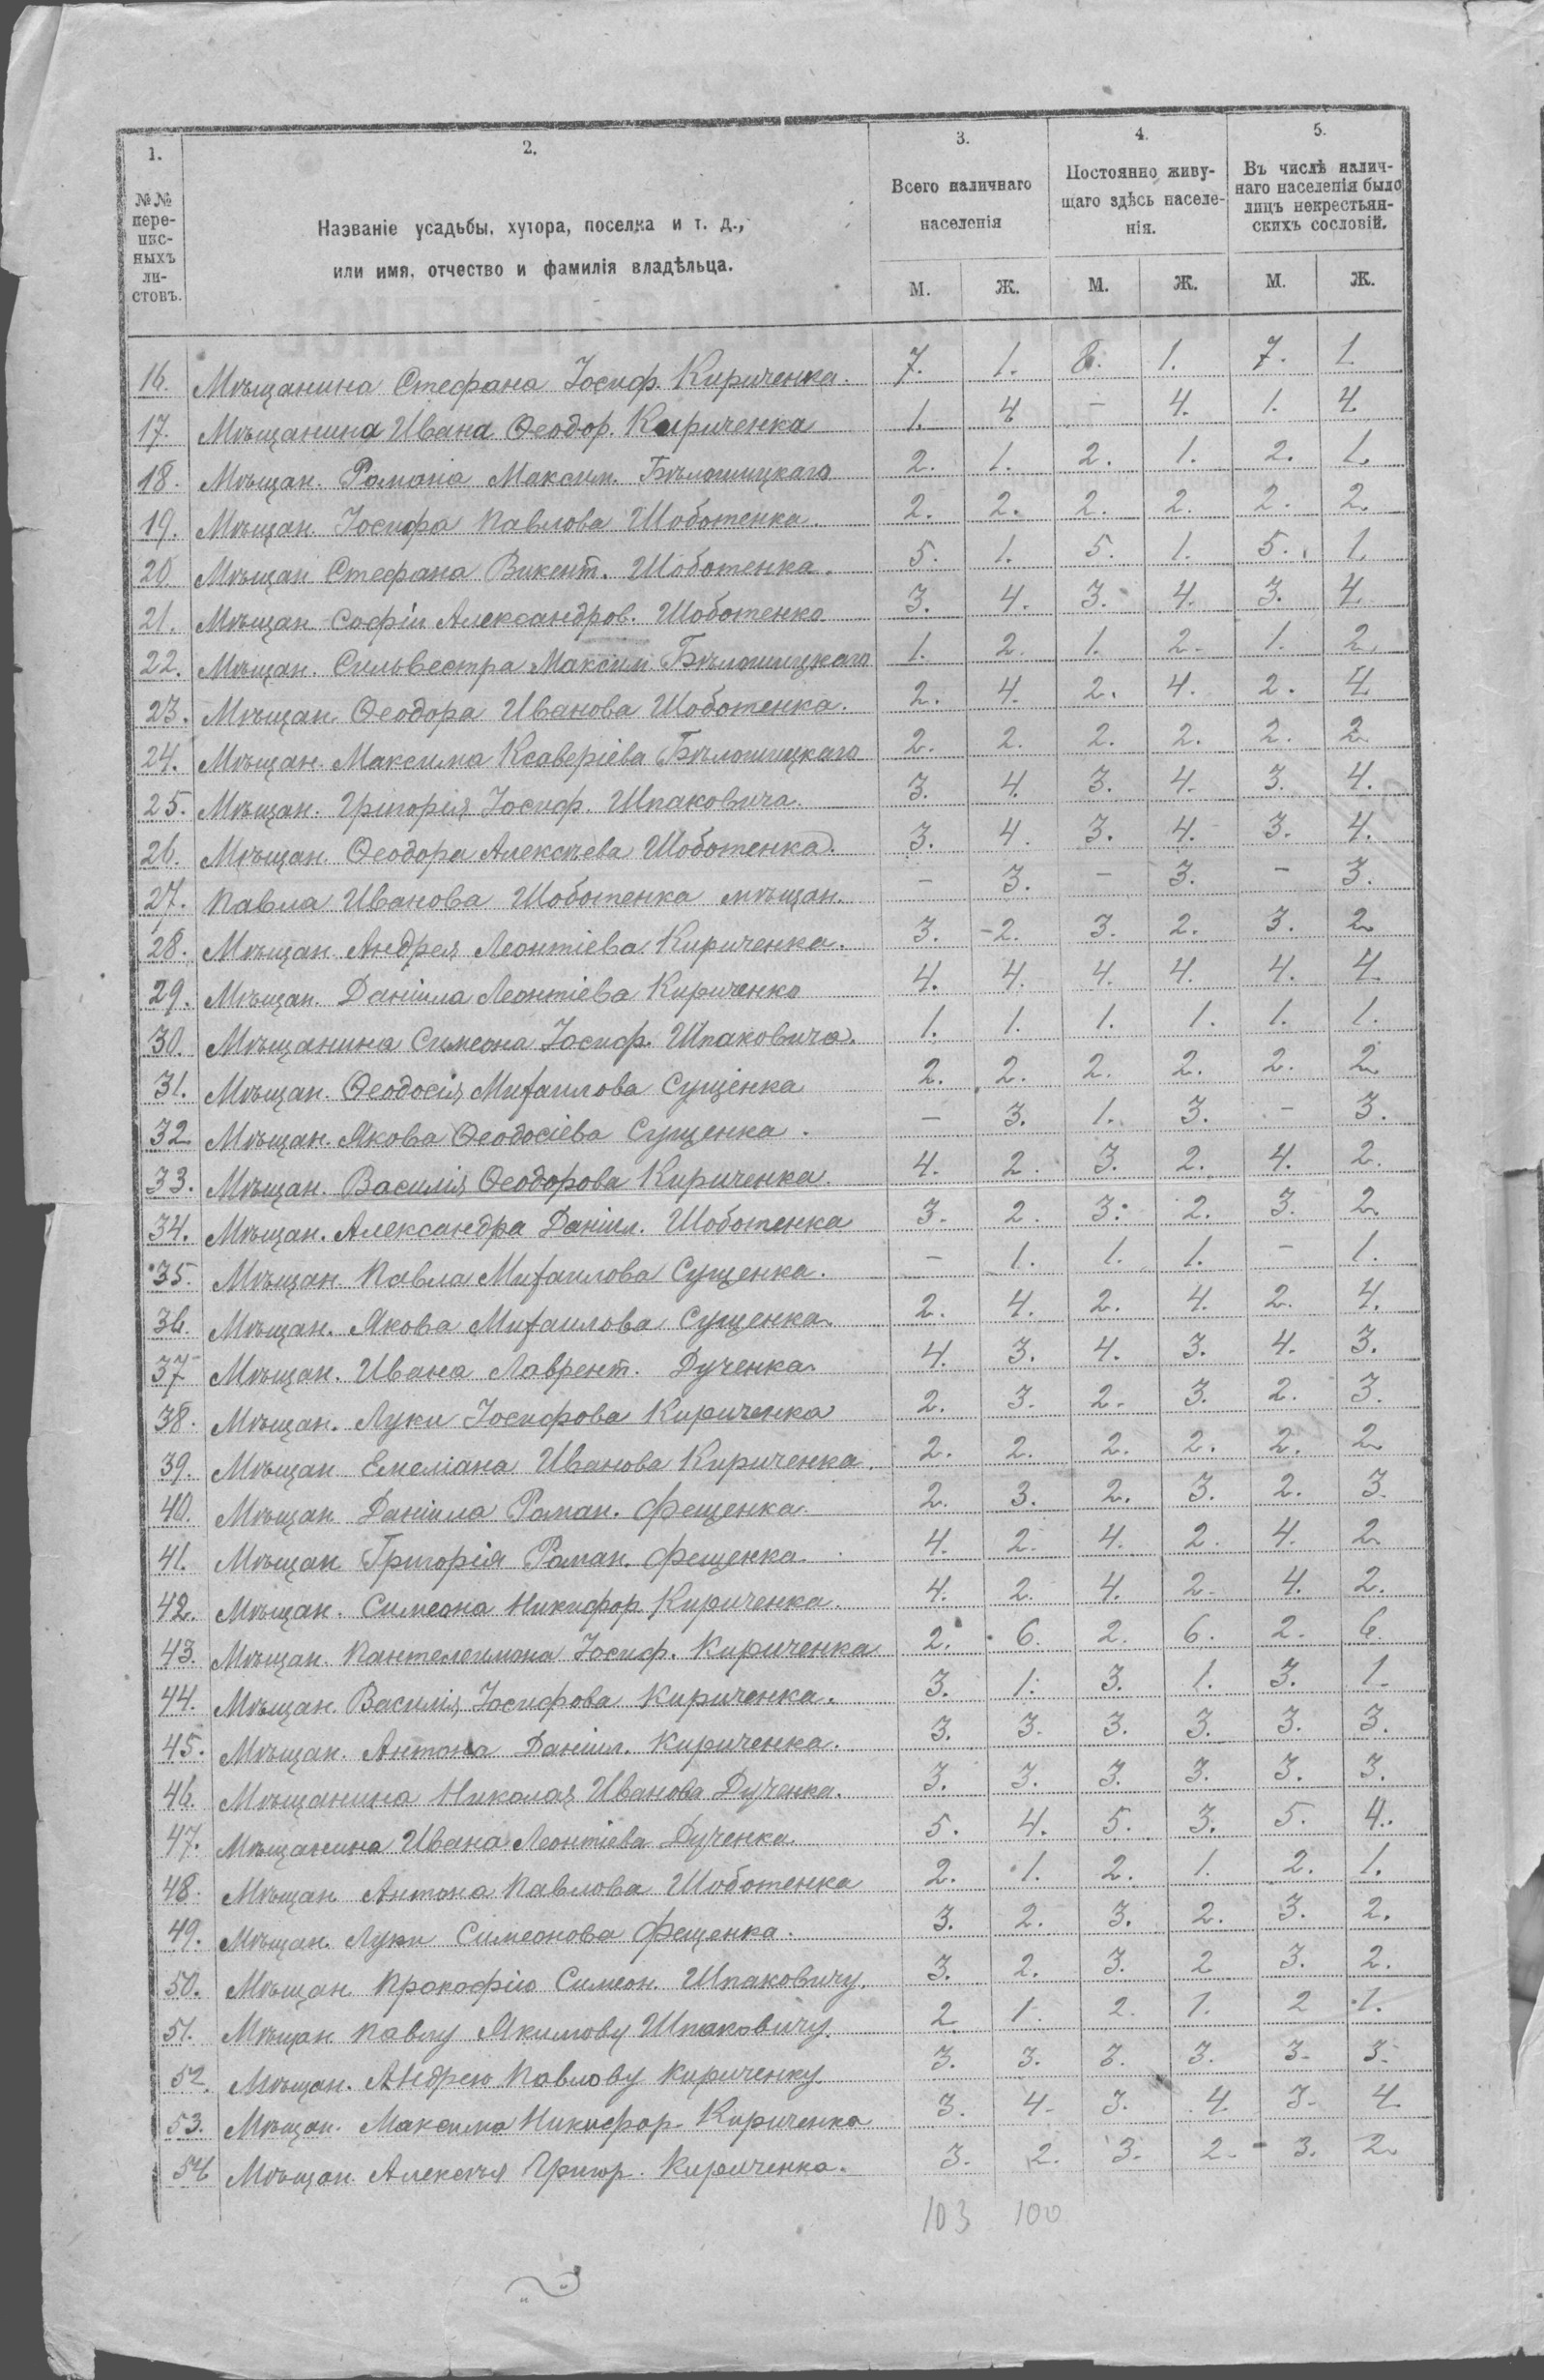 1. 2. 3. 4. 5.
№№ пере-пис-ныхъ ли-стовъ. Названіе усадьбы, хутора, поселка и т. д., или имя, отчество и фамилія владѣльца. Всего наличнаго населенія Постоянно живу-щаго здѣсь населе-нія. Въ числѣ налич-наго населенія было лицъ некрестьян-скихъ сословій.
М. Ж. М. Ж. М. Ж.
16. Мѣщанина Стефана Іосиф. Кириченка. 7. 1. 8. 1. 7. 1.
17. Мѣщанина Ивана Ѳеодор. Кириченка 1. 4 – 4. 1. 4.
18. Мѣщан. Романа Максим. Бѣлошицкаго 2. 1. 2. 1. 2. 1.
19. Мѣщан. Іосифа Павлова Шоботенка. 2. 2. 2. 2. 2. 2.
20. Мѣщан Стефана Викент. Шоботенка. 5. 1. 5. 1. 5. 1.
21. Мѣщан Софіи Александров. Шоботенко 3. 4. 3. 4. 3. 4.
22. Мѣщан. Сильвестра Максим Бѣлошицкаго 1. 2. 1. 2. 1. 2.
23. Мѣщан. Ѳеодора Иванова Шоботенка. 2. 4. 2. 4. 2. 4
24. Мѣщан. Максима Ксаверіева Бѣлошицкаго 2. 2. 2. 2. 2. 2
25. Мѣщан. Григорія Іосиф. Шпаковича. 3. 4. 3. 4. 3. 4.
26. Мѣщан. Ѳеодора Алексѣева Шоботенка. 3. 4. 3. 4. 3. 4.
27. Павла Иванова Шоботенка мѣщан. – 3. – 3. – 3.
28. Мѣщан. Андрея Леонтіева Кириченка. 3. 2. 3. 2. 3. 2
29. Мѣщан. Даніила Леонтіева Кириченко 4. 4. 4. 4. 4. 4
30. Мѣщанина Симеона Іосиф. Шпаковича. 1. 1. 1. 1. 1. 1.
31. Мѣщан. Ѳеодосія Михаилова Сущенка 2. 2. 2. 2. 2. 2.
32 Мѣщан. Якова Ѳеодосіева Сущенка. – 3. 1. 3. – 3.
33. Мѣщан. Василія Ѳеодорова Кириченка. 4. 2. 3. 2. 4. 2.
34. Мѣщан. Александра Даніил. Шоботенка 3. 2. 3. 2. 3. 2.
35. Мѣщан. Павла Михаилова Сущенка. – 1. 1. 1. – 1.
36. Мѣщан. Якова Михаилова Сущенка. 2. 4. 2. 4. 2. 4.
37 Мѣщан. Ивана Лаврент. Дученка. 4. 3. 4. 3. 4. 3.
38. Мѣщан. Луки Іосифова Кириченка 2. 3. 2. 3. 2. 3.
39. Мѣщан Емеліана Иванова Кириченка. 2. 2. 2. 2. 2. 2
40. Мѣщан Даніила Роман. Фещенка. 2. 3. 2. 3. 2. 3.
41. Мѣщан Григорія Роман. Фещенка. 4. 2. 4. 2. 4. 2.
42. Мѣщан. Симеона Никифор. Кириченка. 4. 2. 4. 2. 4. 2.
43. Мѣщан. Пантелеимона Іосиф. Кириченка 2. 6. 2. 6. 2. 6.
44. Мѣщан. Василія Іосифова Кириченка. 3. 1. 3. 1. 3. 1.
45. Мѣщан. Антона Даніил. Кириченка. 3. 3. 3. 3. 3. 3.
46. Мѣщанина Николая Иванова Дученка. 3. 3. 3. 3. 3. 3.
47. Мѣщанина Ивана Леонтіева Дученка. 5. 4. 5. 3. 5. 4.
48. Мѣщан. Антона Павлова Шоботенка 2. 1. 2. 1. 2. 1.
49. Мѣщан. Луки Симеонова Фещенка. 3. 2. 3. 2. 3. 2.
50. Мѣщан. Прокофію Симеон. Шпаковичу. 3. 2. 3. 2 3. 2.
51. Мѣщан. Павлу Якимову Шпаковичу. 2. 1. 2. 1. 2 1.
52. Мѣщан. Андрею Павлову Кириченку. 3. 3. 3. 3. 3. 3.
53. Мѣщан. Максима Никифор. Кириченка 3. 4. 3. 4. 3. 4
54 Мѣщан. Алексѣя Григор. Кириченка. 3. 2. 3. 2. 3. 2.
103 100